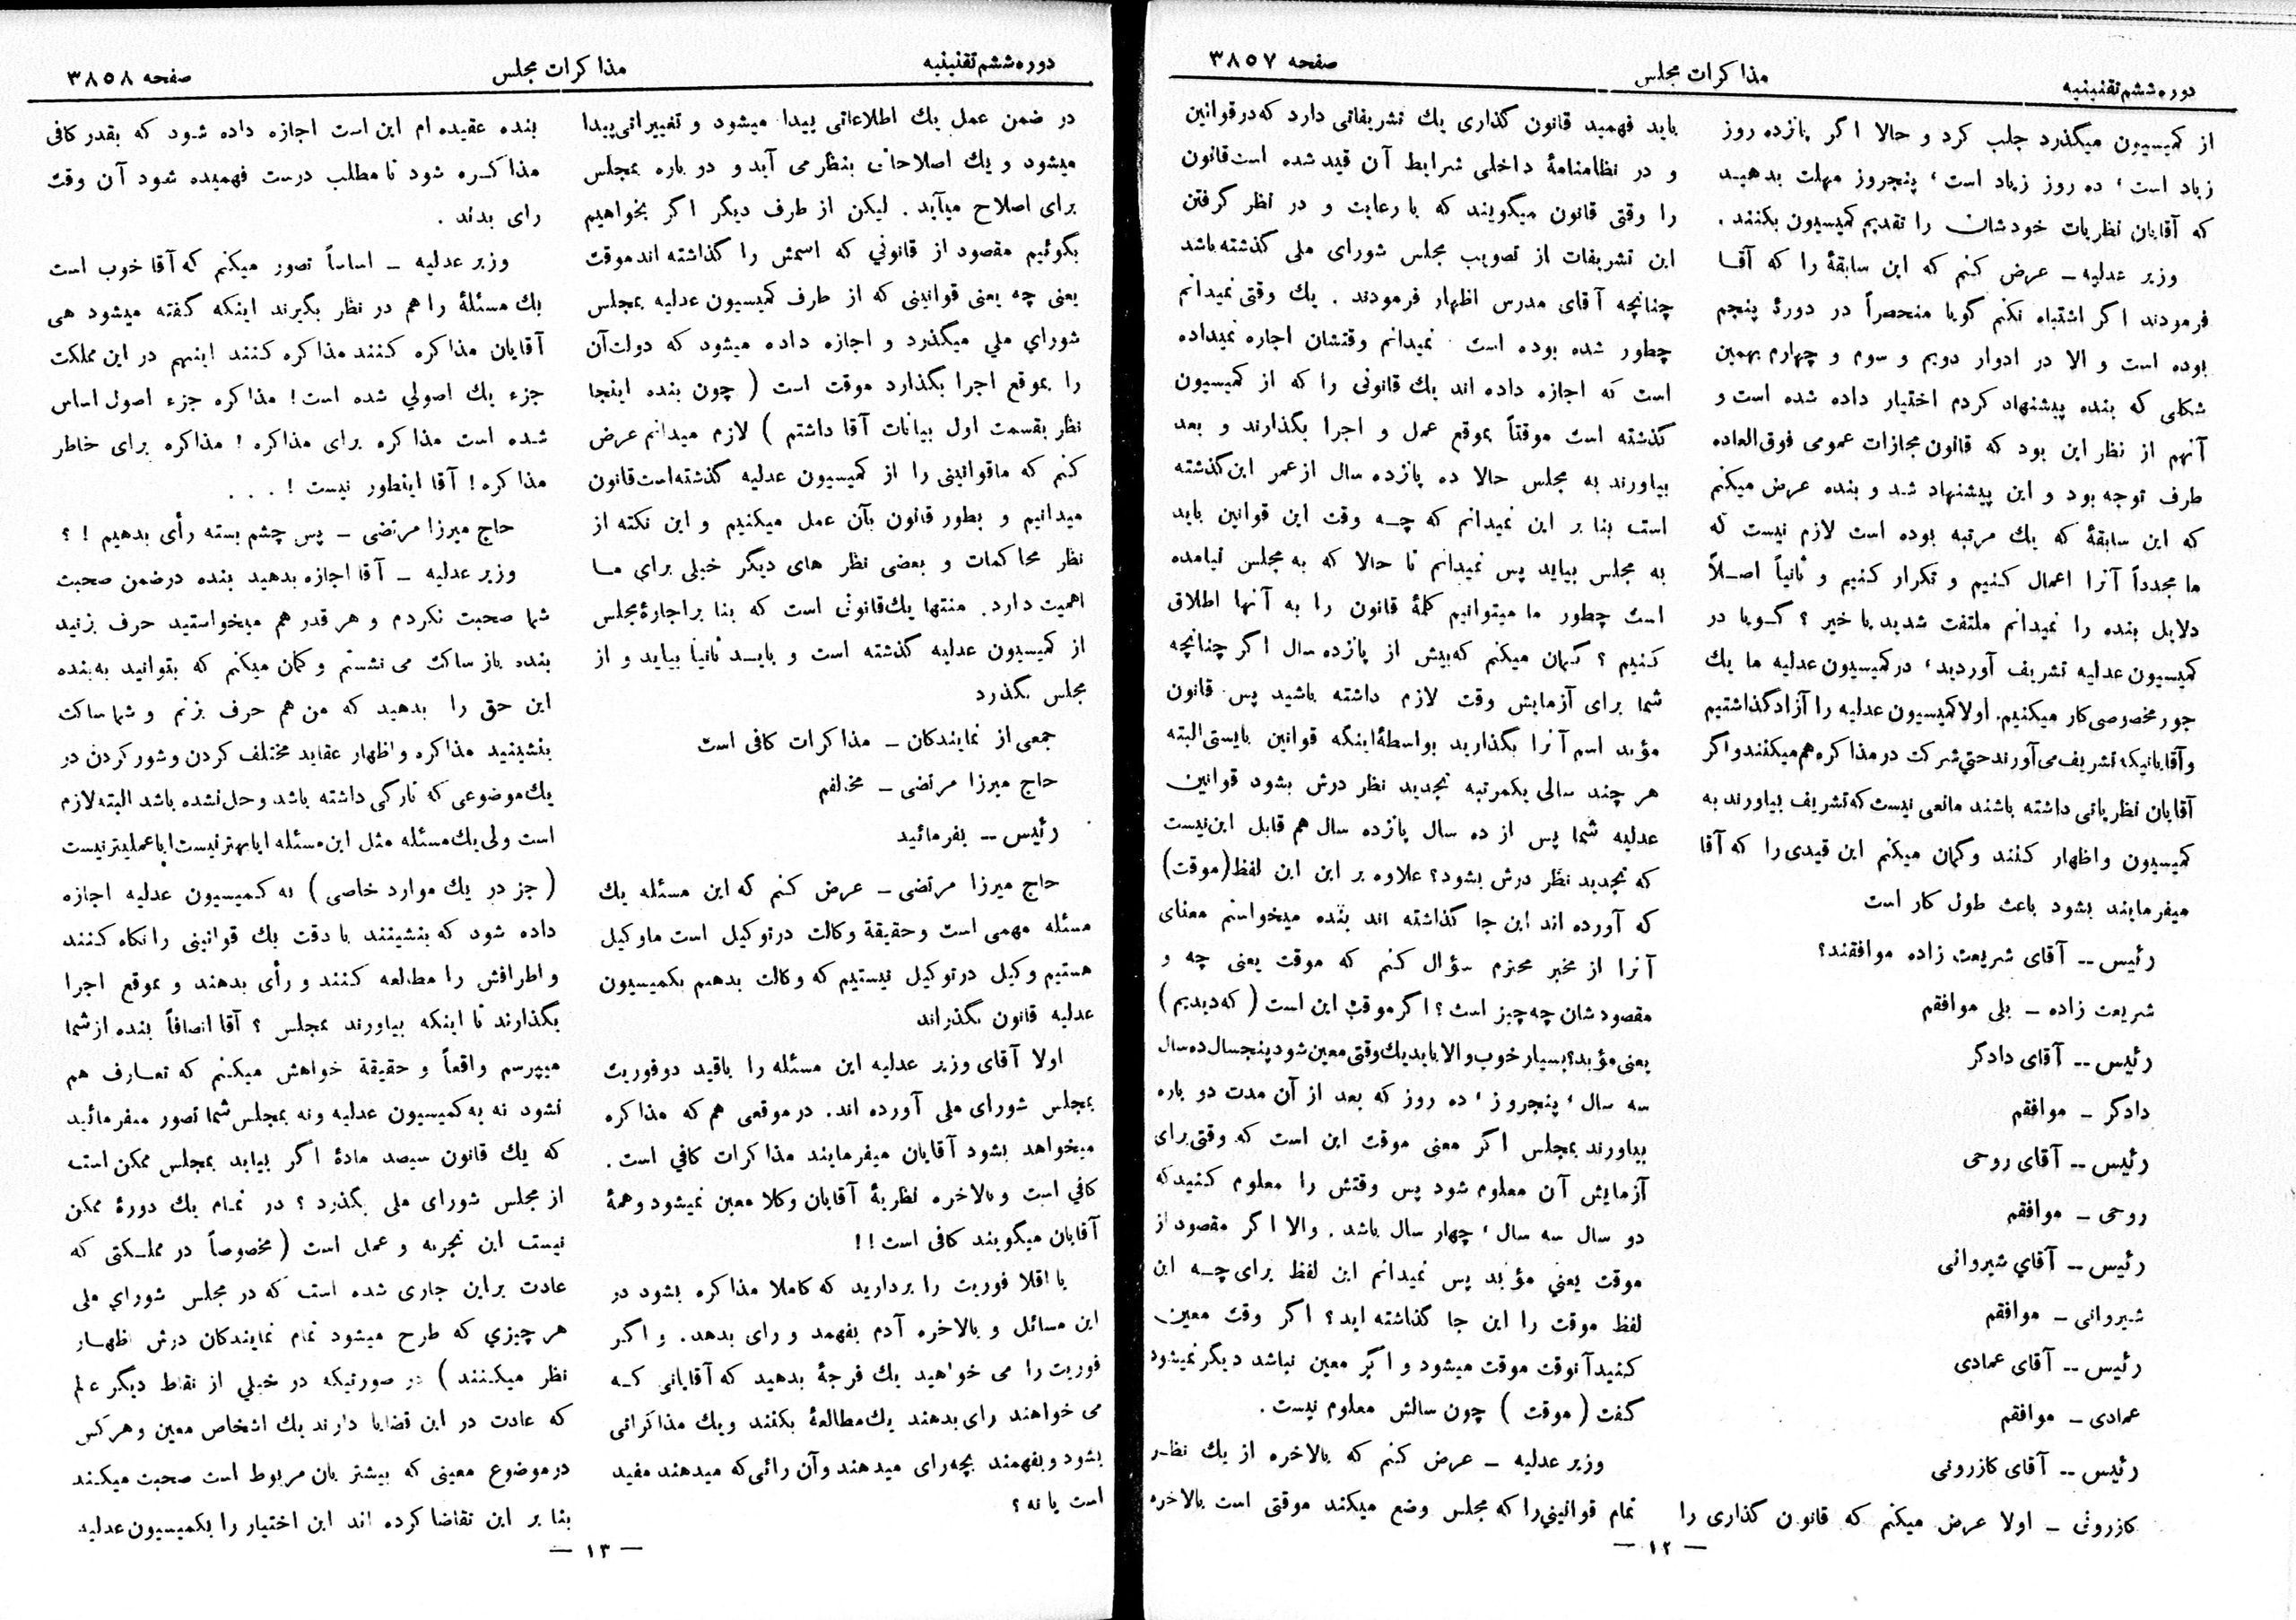 دوره ششم تقنینیه
مذاکرات مجلس
صفحه ۳۸۵۷
از کمیسیون میگذرد جلب کرد و حالا اگر پازده روز
زیاد است ، ده روز زیاد است ، پنجروز مهلت بدهید
که آقایان نظریات خودشان را تقدیم کمیسیون بکنند .
وزیر عدلیه ـ عرض کنم که این سابقهٔ را که آقا
فرمودند اگر اشتباه نکنم گویا منحصراً در دورهٔ پنجم
بوده است و الا در ادوار دویم و سوم و چهارم بهمین
شکلی که بنده پیشنهاد کردم اختیار داده شده است و
آنهم از نظر این بود که قانون مجازات عمومی فوق‌العاده
طرف توجه بود و این پیشنهاد شد و بنده عرض میکنم
که این سابقهٔ که یك مرتبه بوده است لازم نیست که
ما مجدداً آنرا اعمال کنیم و تکرار کنیم و ثانیاً اصلاً
دلایل بنده را نمیدانم ملتفت شدید یا خیر ؟ گویا در
کمیسیون عدلیه تشریف آوردید ، در کمیسیون عدلیه ما یك
جور مخصوصی کار میکنیم. اولا کمیسیون عدلیه را آزاد گذاشتیم
و آقایانیکه تشریف می‌آورند حتي شرکت در مذاکره هم میکنند و اگر
آقایان نظریاتی داشته باشند مانعی نیست که تشریف بیاورند به
کمیسیون و اظهار کنند و گمان میکنم این قیدی را که آقا
میفرمایند بشود باعث طول کار است
رئیس ــ آقای شریعت زاده موافقند؟
شریعت زاده ـ بلی موافقم
رئیس ــ آقای دادگر
دادگر ـ موافقم
رئیس ــ آقای روحی
روحی ـ موافقم
رئیس ــ آقاي شیروانی
شیروانی ـ موافقم
رئیس ــ آقای عمادی
عمادی ـ موافقم
رئیس ــ آقای کازرونی
کازرونی ـ اولا عرض میکنم که قانون گذاری را
باید فهمید قانون گذاری یك تشریفاتی دارد که در قوانین
و در نظامنامهٔ داخلی شرایط آن قید شده است قانون
را وقتی قانون میگویند که با رعایت و در نظر گرفتن
این تشریفات از تصویب مجلس شورای ملی گذشته باشد
چنانچه آقای مدرس اظهار فرمودند . یك وقتی نمیدانم
چطور شده بوده است نمیدانم وقتشان اجاره نمیداده
است که اجازه داده اند یك قانونی را که از کمیسیون
گذشته است موقتاً بموقع عمل و اجرا بگذارند و بعد
بیاورند به مجلس حالا ده پازده سال از عمر این گذشته
است بنا بر این نمیدانم که چه وقت این قوانین باید
به مجلس بیاید پس نمیدانم تا حالا که به مجلس نیامده
است چطور ما میتوانیم کلمهٔ قانون را به آنها اطلاق
کنیم ؟ گمان میکنم که بیش از پازده سال اگر چنانچه
شما برای آزمایش وقت لازم داشته باشید پس قانون
مؤبد اسم آنرا بگذارید بواسطهٔ اینکه قوانین بایستی البته
هر چند سالی یکمرتبه تجدید نظر درش بشود قوانین
عدلیه شما پس از ده سال پازده سال هم قابل این نیست
که تجدید نظر درش بشود؟ علاوه بر این این لفظ (موقت)
که آورده اند این جا گذاشته اند بنده میخواستم معنای
آنرا از مخبر محترم سؤال کنم که موقت یعنی چه و
مقصودشان چه چیز است ؟ اگر موقت این است ( که دیدیم )
یعنی مؤبد؟ بسیار خوب و الا باید یك وقتی معین شود پنجسال ده سال
سه سال ، پنجروز ، ده روز که بعد از آن مدت دو باره
بیاورند بمجلس اگر معنی موقت این است که وقتی برای
آزمایش آن معلوم شود پس وقتش را معلوم کنید که
دو سال سه سال ، چهار سال باشد . والا اگر مقصود از
موقت یعني مؤبد پس نمیدانم این لفظ برای چه این
لفظ موقت را این جا گذاشته اید؟ اگر وقت معین
کنید آنوقت موقت میشود و اگر معین نباشد دیگر نمیشود
گفت ( موقت ) چون سالش معلوم نیست .
وزیر عدلیه ـ عرض کنم که بالاخره از یك نظر
تمام قوانیني را که مجلس وضع میکند موقتی است بالاخره
— ۱۲ —
دوره ششم تقنینیه
مذاکرات مجلس
صفحه ۳۸۵۸
در ضمن عمل یك اطلاعاتی پیدا میشود و تغییراتی پیدا
میشود و یك اصلاحاتی بنظر می آید و دو باره بمجلس
برای اصلاح میآید . لیکن از طرف دیگر اگر بخواهیم
بگوئیم مقصود از قانوني که اسمش را گذاشته اند موقت
یعنی چه یعنی قوانینی که از طرف کمیسیون عدلیه بمجلس
شوراي ملي میگذرد و اجازه داده میشود که دولت آن
را بموقع اجرا بگذارد موقت است ( چون بنده اینجا
نظر بقسمت اول بیانات آقا داشتم ) لازم میدانم عرض
کنم که ما قوانینی را از کمیسیون عدلیه گذشته است قانون
میدانیم و بطور قانون بآن عمل میکنیم و این نکته از
نظر محاکمات و بعضی نظر های دیگر خیلی براي ما
اهمیت دارد. منتها یك قانونی است که بنا بر اجازهٔ مجلس
از کمیسیون عدلیه گذشته است و باید ثانیاً بیاید و از
مجلس بگذرد
جمعی از نمایندکان ـ مذاکرات کافی است
حاج میرزا مرتضی ـ مخالفم
رئیس ــ بفرمائید
حاج میرزا مرتضی ـ عرض کنم که این مسئله یك
مسئله مهمی است و حقیقة وکالت در توکیل است ما وکیل
هستیم وکیل در توکیل نیستیم که وکالت بدهیم بکمیسیون
عدلیه قانون بگذراند
اولا آقای وزیر عدلیه این مسئله را باقید دو فوریت
بمجلس شورای ملی آورده اند. در موقعی هم که مذاکره
میخواهد بشود آقایان میفرمایند مذاکرات کافي است .
کافي است و بالاخره نظریهٔ آقایان وکلا معین نمیشود و همهٔ
آقایان میگویند کافی است ! !
یا اقلا فوریت را بردارید که کاملا مذاکره بشود در
این مسائل و بالاخره آدم بفهمد و رای بدهد. و اگر
فوریت را می خواهید یك فرجهٔ بدهید که آقایانی که
می خواهند رای بدهند یك مطالعهٔ بکنند و یك مذاکراتی
بشود و بفهمند بچه رای میدهند و آن رائی که میدهند مفید
است یا نه ؟
بنده عقیده ام این است اجازه داده شود که بقدر کافی
مذاکره شود تا مطلب درست فهمیده شود آن وقت
رای بدند .
وزیر عدلیه ـ اساساً تصور میکنم که آقا خوب است
یك مسئلهٔ را هم در نظر بگیرند اینکه گفته میشود هی
آقایان مذاکره کنند مذاکره کنند اینهم در این مملکت
جزء یك اصولي شده است ! مذاکره جزء اصول اساس
شده است مذاکره برای مذاکره ! مذاکره برای خاطر
مذاکره ! آقا اینطور نیست ! . . .
حاج میرزا مرتضی ـ پس چشم بسته رأی بدهیم ! ؟
وزیر عدلیه ـ آقا اجازه بدهید بنده در ضمن صحبت
شما صحبت نکردم و هر قدر هم میخواستید حرف بزنید
بنده باز ساکت می نشستم و گمان میکنم که بتوانید به بنده
این حق را بدهید که من هم حرف بزنم و شما ساکت
بنشینید مذاکره و اظهار عقاید مختلف کردن و شور کردن در
یك موضوعی که تارکی داشته باشد و حل نشده باشد البته لازم
است ولی یك مسئله مثل این مسئله ایا بهتر نیست ایا عملیتر نیست
( جز در یك موارد خاصی ) به کمیسیون عدلیه اجازه
داده شود که بنشینند با دقت یك قوانینی را نگاه کنند
و اطرافش را مطالعه کنند و رأی بدهند و بموقع اجرا
بگذارند تا اینکه بیاورند بمجلس ؟ آقا انصافاً بنده از شما
میپرسم واقعاً و حقیقة خواهش میکنم که تعارف هم
نشود نه به کمیسیون عدلیه و نه بمجلس شما تصور میفرمائید
که یك قانون سیصد مادهٔ اگر بیاید بمجلس ممکن است
از مجلس شورای ملی بگذرد ؟ در تمام یك دورهٔ ممکن
نیست این تجربه و عمل است ( مخصوصاً در مملکتی که
عادت براین جاری شده است که در مجلس شوراي ملی
هر چیزي که طرح میشود تمام نمایندکان درش اظهار
نظر میکنند ) در صورتیکه در خیلي از نقاط دیگر عالم
که عادت در این قضایا دارند یك اشخاص معین و هرکس
در موضوع معینی که بیشتر بآن مربوط است صحبت میکند
بنا بر این تقاضا کرده اند این اختیار را بکمیسیون عدلیه
— ۱۳ —